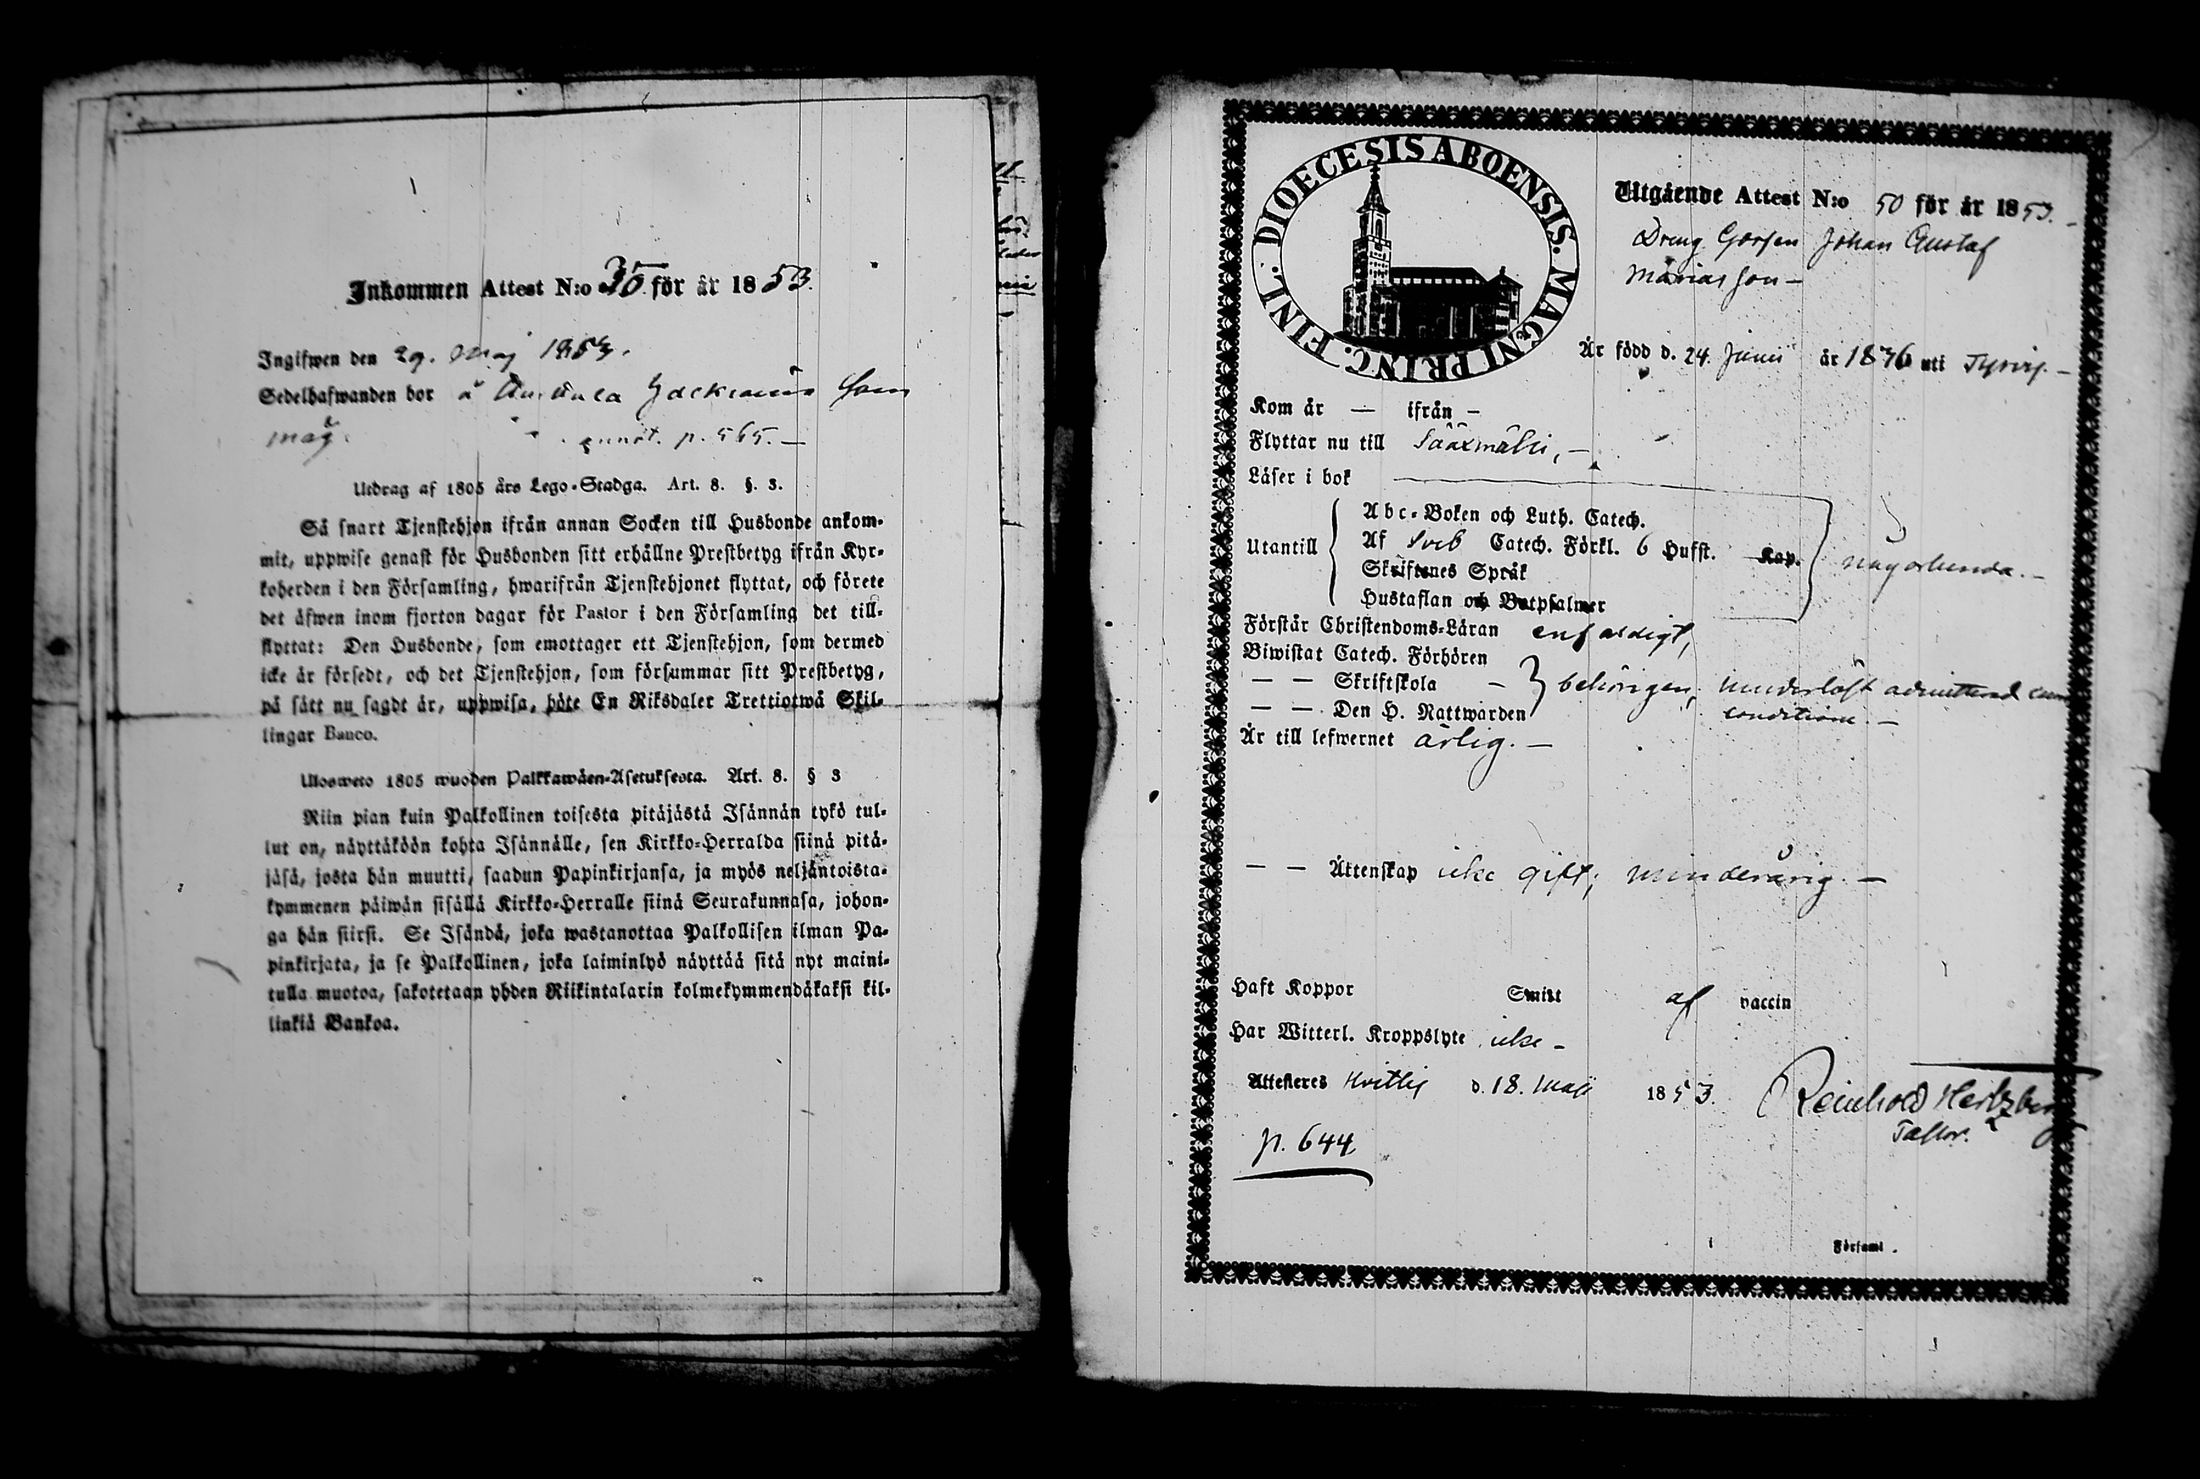 Inkommen Attest N:o 35 för år 1853.
Ingifwen den 29. Maj 1853.
Sedelhafwanden bor å Jackiamis Som
måg. p. 565. —
Utdrag af 1805 års Lego-Stadga. Art. 8. §. 3.
Så snart Tjenstehjon ifrån annan Socken till Husbonde ankom-
mit, uppwise genast för Husbonden sitt erhållne Prestbetyg ifrån Kyr-
koherden i den Församling, hwarifrån Tjenstehjonet flyttat, och förete
det äfwen inom fjorton dagar för Pastor i den Församling det till-
flyttat: Den Husbonde, som emottager ett Tjenstehjon, som dermed
icke är försedt, och det Tjenstehjon, som försummar sitt Prestbetyg,
på sätt nu sagdt är, uppwisa, böte En Riksdaler Trettiotwå Skil-
lingar Banco.
Ulosweto 1805 wuoden Palkkawäen-Asetuksesta. Art. 8. § 3
Niin pian kuin Palkollinen toisesta pitäjästä Isännän tykö tul-
lut on, näyttäköön kohta Isännälle, sen Kirkko-Herralda siinä pitä-
jäsä, josta hän muutti, saadun Papinkirjansa, ja myös neljäntoista-
kymmenen päiwän sisällä Kirkko-Herralle siinä Seurakunnasa, johon-
ga hän siirsi. Se Isändä, joka wastanottaa Palkollisen ilman Pa-
pinkirjata, ja se Palkollinen, joka laiminlyö näyttää sitä nyt maini-
tulla muotoa, sakotetaan yhden Riikintalarin kolmekymmendäkaksi kil-
linkiä Bankoa.
DIOECESIS ABOENSIS. MAGNI PRINC. FINL.
Utgående Attest N:o 50 för år 1853. —
Dreng Gossen Johan Gustaf
Mariasson —
Är född d. 24 Junii år 1836 uti Tyrvis —
Kom år — ifrån —
Flyttar nu till Sääxmäki, —
Läser i bok
Utantill
Abc-Boken och Luth. Catech.
Af Sveb Catech. Förkl. 6 Hufst. Kap.
Skriftenes Språk
Hustaflan och Botpsalmer
någorlunda. —
Förstår Christendoms-Läran enfaldigt,
Biwistat Catech. Förhören
— — Skriftskola —
— — Den H. Nattwarden
behörigen, admitterad cum
conditione. —
Är till lefwernet ärlig. —
— — Ättenskap icke gift; minderårig. —
Haft Koppor Smitt af vaccin
Har Witterl. Kroppslyte icke —
Attesteres Hvittis d. 18. Maji 1853.
Reinhold Hertzberg
Pastor.
p. 644
Församl.